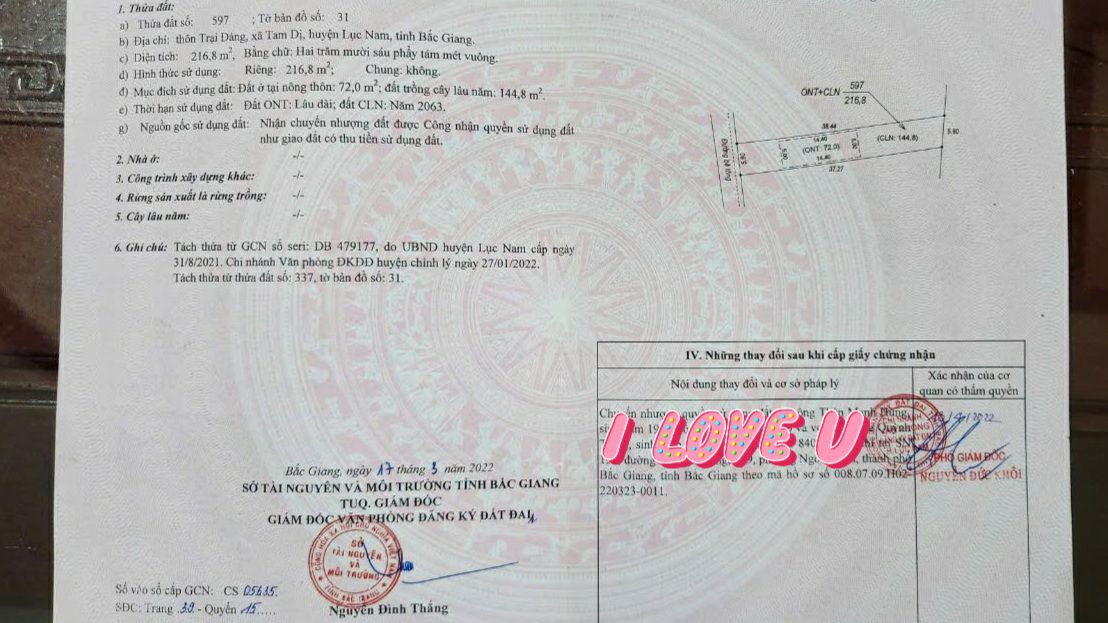 1. Thửa đất:
a) Thửa đất số: 597 ; Tờ bản đồ số: 31
b) Địa chỉ: thôn Trại Đáng, xã Tam Dị, huyện Lục Nam, tỉnh Bắc Giang.
c) Diện tích: 216,8 m², Bằng chữ: Hai trăm mười sáu phẩy tám mét vuông.
d) Hình thức sử dụng: Riêng: 216,8 m²; Chung: không.
đ) Mục đích sử dụng đất: Đất ở tại nông thôn: 72,0 m²; đất trồng cây lâu năm: 144,8 m².
e) Thời hạn sử dụng đất: Đất ONT: Lâu dài; đất CLN: Năm 2063.
g) Nguồn gốc sử dụng đất: Nhận chuyển nhượng đất được Công nhận quyền sử dụng đất
như giao đất có thu tiền sử dụng đất.
2. Nhà ở: -/-
3. Công trình xây dựng khác: -/-
4. Rừng sản xuất là rừng trồng: -/-
5. Cây lâu năm: -/-
6. Ghi chú: Tách thửa từ GCN số seri: DB 479177, do UBND huyện Lục Nam cấp ngày
31/8/2021. Chi nhánh Văn phòng ĐKĐĐ huyện chỉnh lý ngày 27/01/2022.
Tách thửa từ thửa đất số: 337, tờ bản đồ số: 31.
ONT+CLN 597
216,8
38.44
14.40
(ONT: 72.0)
(CLN: 144,8)
5.80
5.00
5.80
14.40
37.27
Đường bê tông
Bắc Giang, ngày 17 tháng 3 năm 2022
SỞ TÀI NGUYÊN VÀ MÔI TRƯỜNG TỈNH BẮC GIANG
TUQ. GIÁM ĐỐC
GIÁM ĐỐC VĂN PHÒNG ĐĂNG KÝ ĐẤT ĐAI
SỞ
TÀI NGUYÊN
VÀ
MÔI TRƯỜNG
TỈNH BẮC GIANG
Nguyễn Đình Thắng
Số vào sổ cấp GCN: CS 05635
SĐC: Trang 39 - Quyển 15
IV. Những thay đổi sau khi cấp giấy chứng nhận
Nội dung thay đổi và cơ sở pháp lý
Xác nhận của cơ
quan có thẩm quyền
I LOVE U
đường
thành phố
Bắc Giang, tỉnh Bắc Giang theo mã hồ sơ số 008.07.09.H02-
220323-0011.
PHÓ GIÁM ĐỐC
NGUYỄN ĐỨC KHÔI